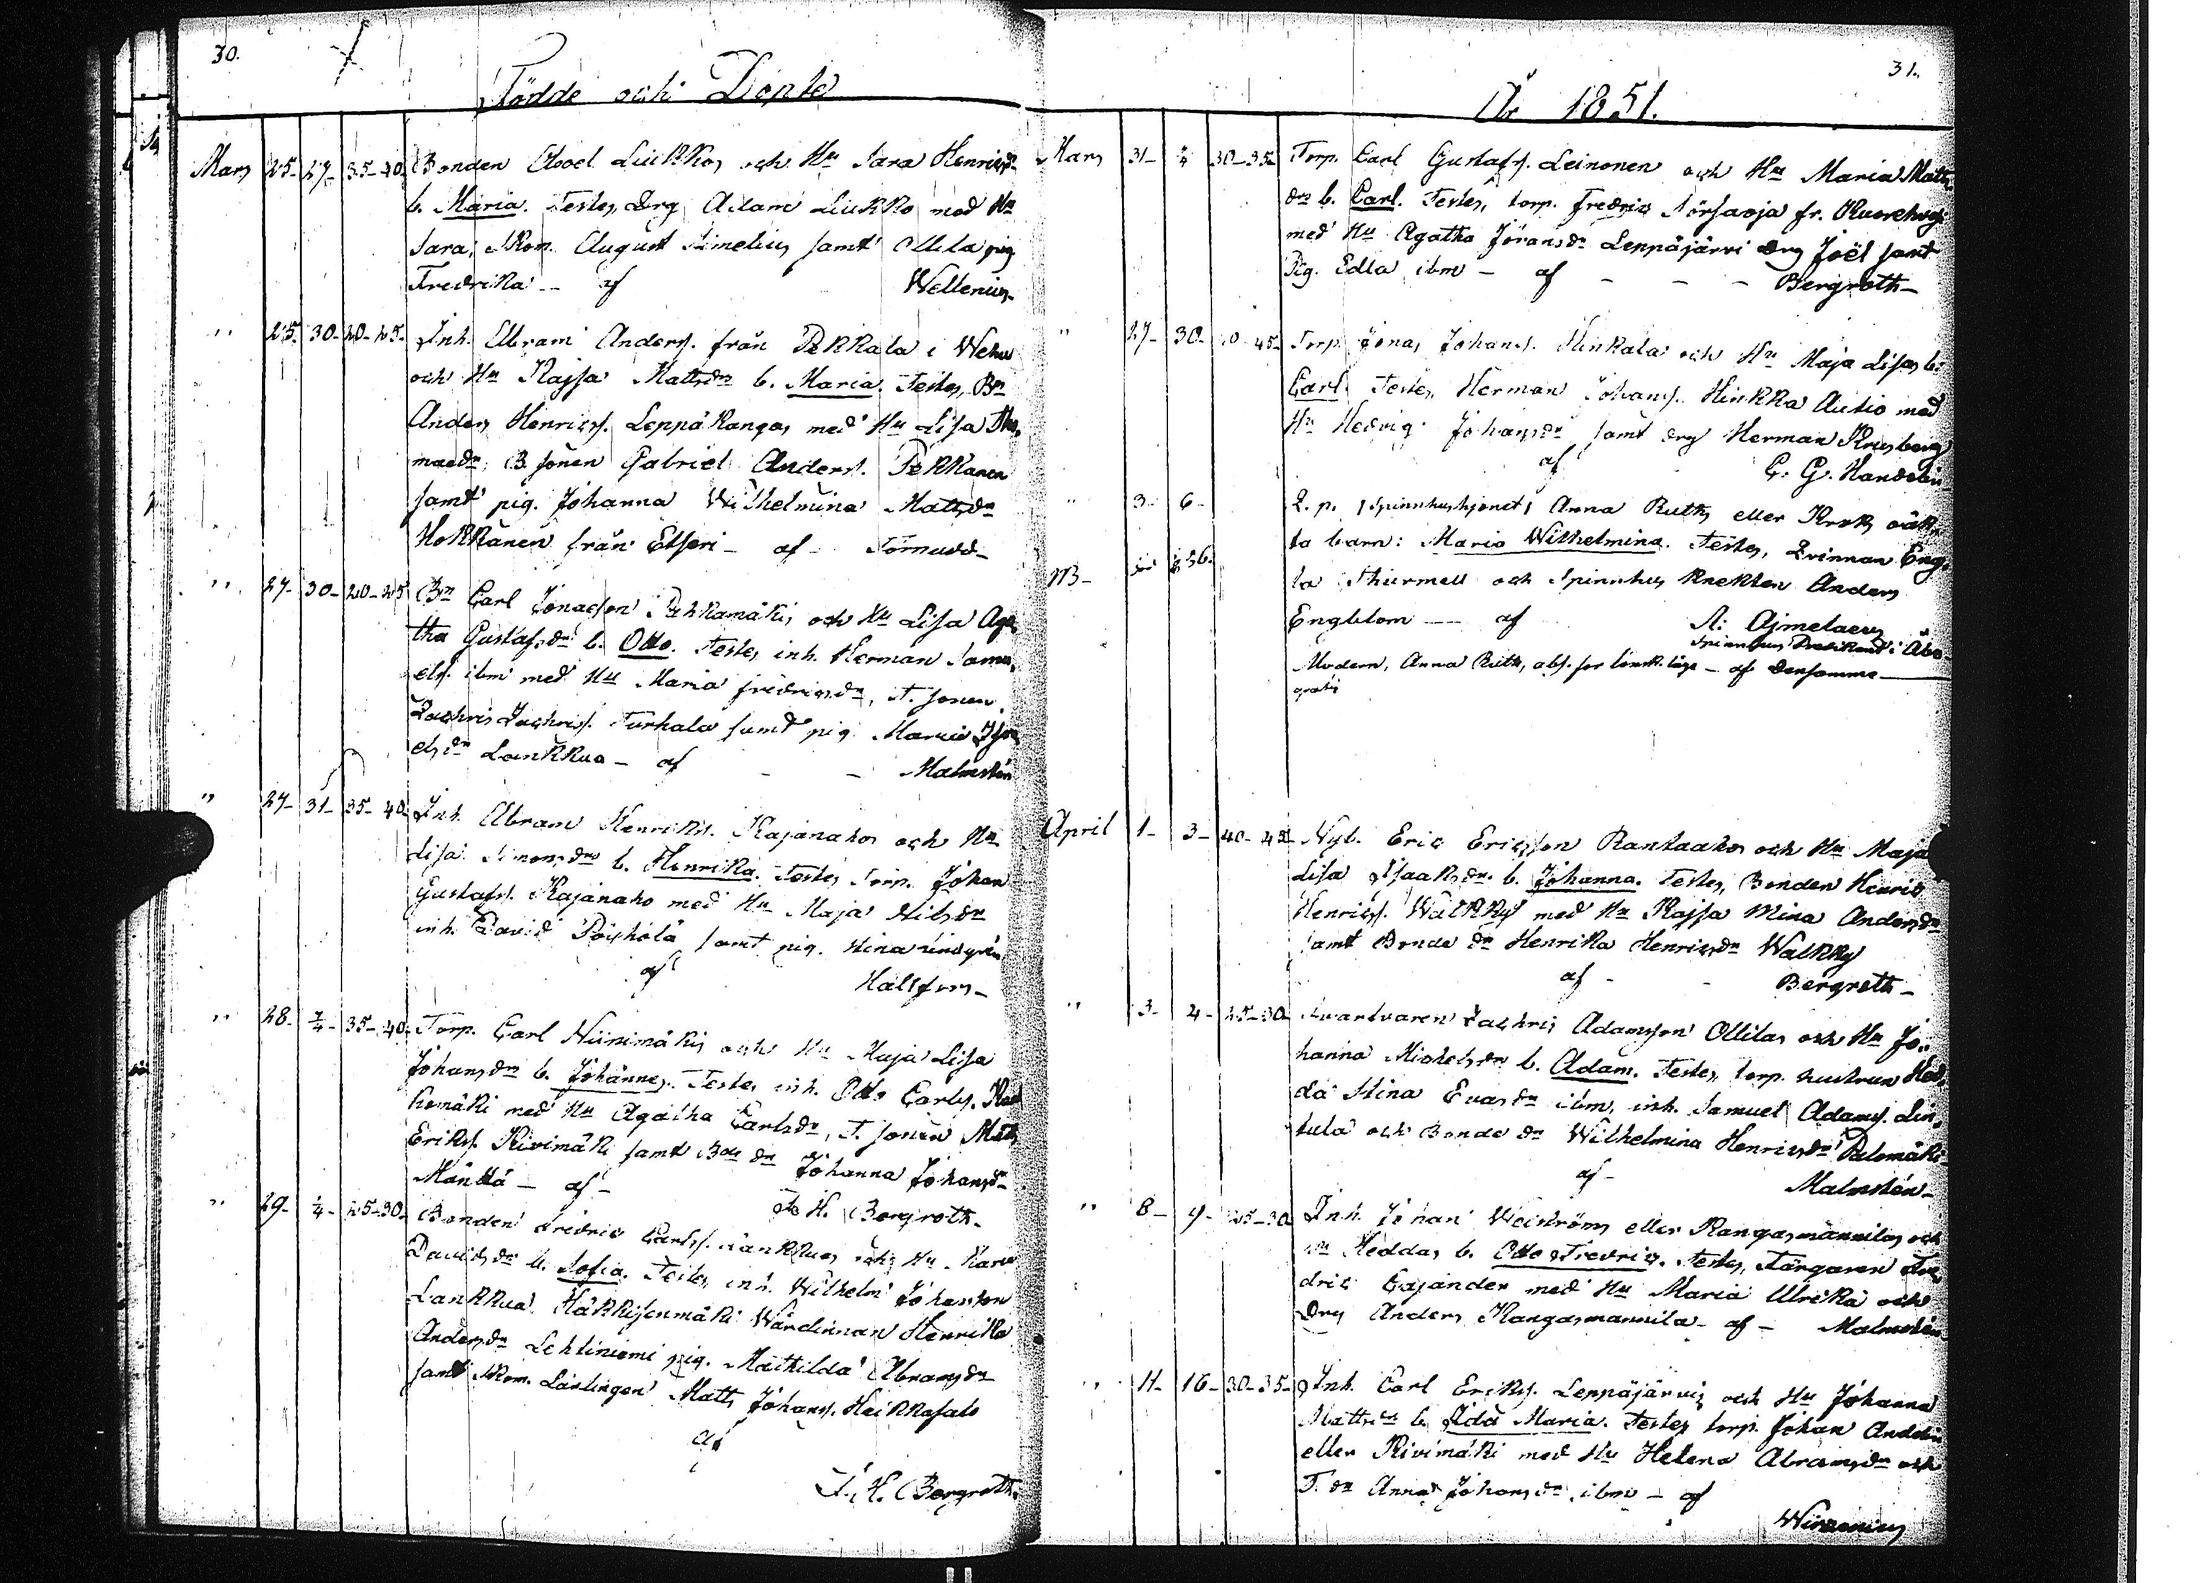 30.
Födde och Döpte
Mars 25- 27- 35-40 Bonden Liukkos och Hu Sara Henricsdr
b. Maria. Testes, Drg Adam Liukko med Hu
Sara, Skom. August Simelius samt Ollila pig.
Fredrika - af Wellenius-
" 25- 30- 20-25- Inh. Abram Anderss. från Pekkala i
och Hu Kajsa Mattsdr b. Maria. Testes, Bn
Anders Henricss. Leppäkangas med Hu Lisa Tho-
maedr, B. sonen Gabriel Anderss. Pekkanen
samt pig. Johanna Wilhelmina Mattsdr
Hokkanen från Etseri - af - Törnudd-
" 27- 30- 20-25 Bn Carl Jonasson och Hu Lisa Aga-
tha Gustafsdr b. Otto. Testes inh. Herman Samu-
elss. ibm med Hu Maria Fredricsdr, T. sonen
Zachris Zachriss. Turhala samt pig. Maria
elsdr Lankkua - af - - Malmstén
" 27- 31- 35-40 Inh. Abram Henrikss. Kajanahos och Hu
Lisa Simonsdr b. Henrika. Testes Torp. Johan
Gustafss. Kajanaho med Hu Maja Nilsdr
inh. David samt pig. Stina Lindgrén
af Hällfors-
" 28- 2/4- 35-40- Torp. Carl Niinimäkis och Hu Maja Lisa
Johansdr b. Johannes. Testes inh. Otto Carlss.
med Hu Agatha Carlsdr, T. sonen Matts
Erikss. Kivimäki samt Bde dr Johanna Johansdr
Mänttä - af - F. H. Bergroth-
" 29- 1/4- 25-30- Bonden Fredric Carlss. Lankkuas och Hu
Davidsdr b. Sofia. Testes inh. Wilhelm Johansson
Lankkua, Härkisenmäki Wärdinnan Henrika
Andersdr Lehtiniemi pig. Mathilda Abramsdr
samt Skom. Lärlingen Matts Johanss. Heikkasalo
af
F. H. Bergroth.
31.
År 1851.
Mars 31- 2/4 30-35- Torp. Carl Gustafss. Leinonen och Hu Maria Matts-
dr b. Carl. Testes, torp. Fredric fr.
med Hu Agatha Jöransdr Leppäjärvi Drg Joël samt
Pig. Edla ibm - af - - - Bergroth-
" 27- 30- 45- Torp. Jonas Johanss. och Hu Maja Lisas b.
Carl. Testes, Herman Johanss. Hinkka Autio med
Hu Hedvig Johansdr samt drg Herman
af C. G. Handelin
" 3- 6- Q. p. Spinnhushjonet, Anna Ruths eller oäk-
ta barn: Maria Wilhelmina. Testes, Qvinnan Eng-
la Thurmell och Spinnhus Knekten Anders
Engblom - af A: Ajmelaeus
Spinnhus Predikant i Åbo
Modern, Anna Ruth, abs. - af Densamme
gratis
April 1- 3- 40-45 Nyb. Eric Ericsson Rantaahos och Hu Maja
Lisa Isaaksdr b. Johanna. Testes, Bonden Henric
Henricss. Walkky med Hu Kajsa Mina Andersdr
samt Bonde dr Henrika Henricsdr Walkky
af - - Bergroth-
" 3- 4- 25-30- Svartvaren Zachris Adamsson Ollilas och Hu Jo-
hanna Mickelsdr b. Adam. Testes, torp. hustrun Hed-
da Stina Evasdr ibm, inh. Samuel Adamss. Lin-
tula och Bonde dr Wilhelmina Henricsdr Palomäki-
af - Malmstén-
" 8- 9- 25-30 Inh. Johan eller Kangasmannilas och
Hu Heddas b. Otto Fredric. Testes, Färgaren Fre-
dric Cajander med Hu Maria Ulrika och
Drg Anders Kangasmannila - af - Malmstén
" 11- 16- 30-35- Inh. Carl Erikss. Leppäjärvis och Hu Johanna
Mattsdr b. Ida Maria. Testes torp. Johan
eller Kivimäki med Hu Helena Abramsdr och
T. dr Anna Johansdr, ibm - af